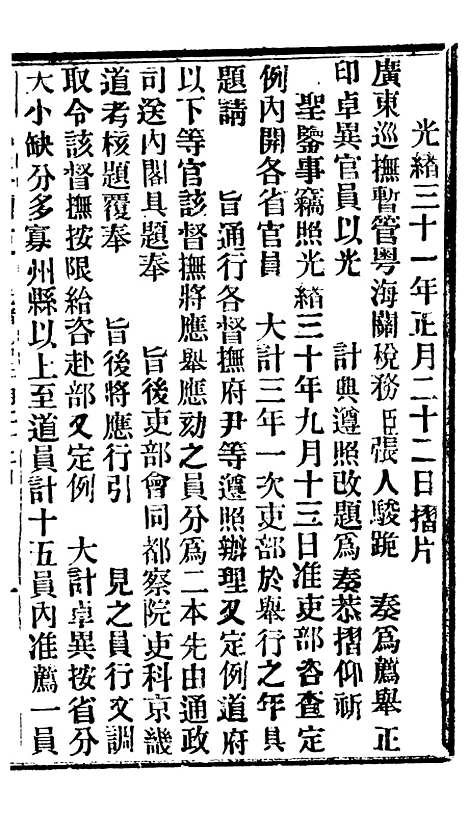 光緒三十一年正月二十二日摺片
廣東巡撫暫管粵海關稅務臣張人駿跪　奏爲薦舉正
印卓異官員以光　計典遵照改題爲奏恭摺仰祈
聖鑒事竊照光緒三十年九月十三日准吏部咨查定
例內開各省官員　大計三年一次吏部於舉行之年具
題請　旨通行各督撫府尹等遵照辦理又定例道府
以下等官該督撫將應舉應劾之員分爲二本先由通政
司送內閣具題奉　旨後吏部會同都察院吏科京畿
道考核題覆奉　旨後將應行引　見之員行文調
取令該督撫按限給咨赴部又定例　大計卓異按省分
大小缺分多寡州縣以上至道員計十五員內准薦一員